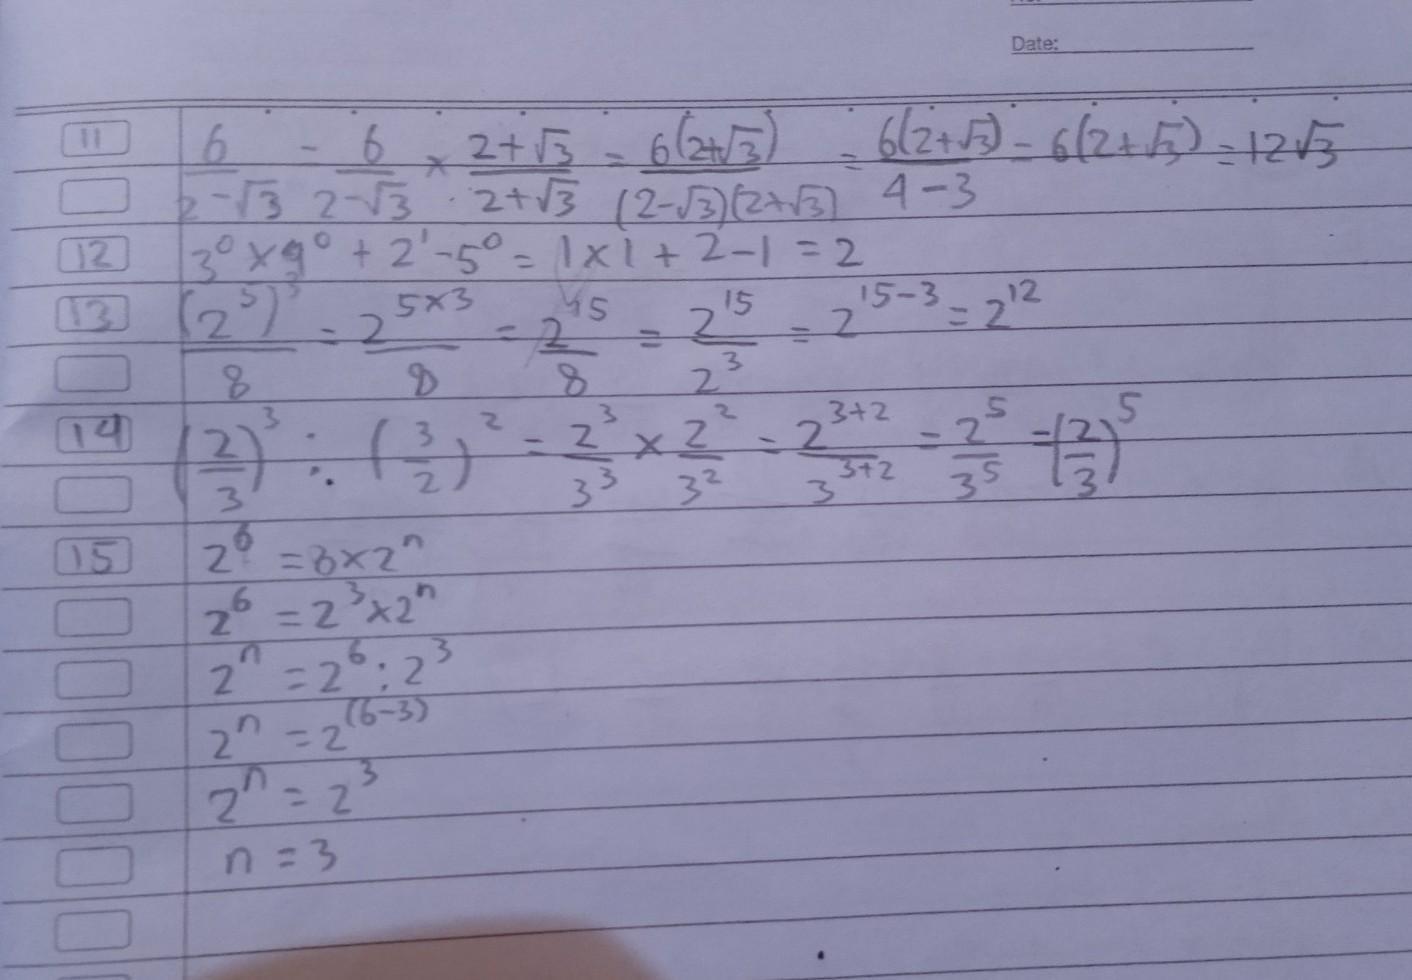 Date:
11 6/(2-√3) = 6/(2-√3) × (2+√3)/(2+√3) = 6(2+√3)/((2-√3)(2+√3)) = 6(2+√3)/(4-3) = 6(2+√3) = 12√3
12 3⁰ × 9⁰ + 2¹ - 5⁰ = 1 × 1 + 2 - 1 = 2
13 (2⁵)³/8 = 2⁵ˣ³/8 = 2¹⁵/8 = 2¹⁵/2³ = 2¹⁵⁻³ = 2¹²
14 (2/3)³ : (3/2)² = 2³/3³ × 2²/3² = 2³⁺²/3³⁺² = 2⁵/3⁵ = (2/3)⁵
15 2⁶ = 8 × 2ⁿ
2⁶ = 2³ × 2ⁿ
2ⁿ = 2⁶ : 2³
2ⁿ = 2⁽⁶⁻³⁾
2ⁿ = 2³
n = 3